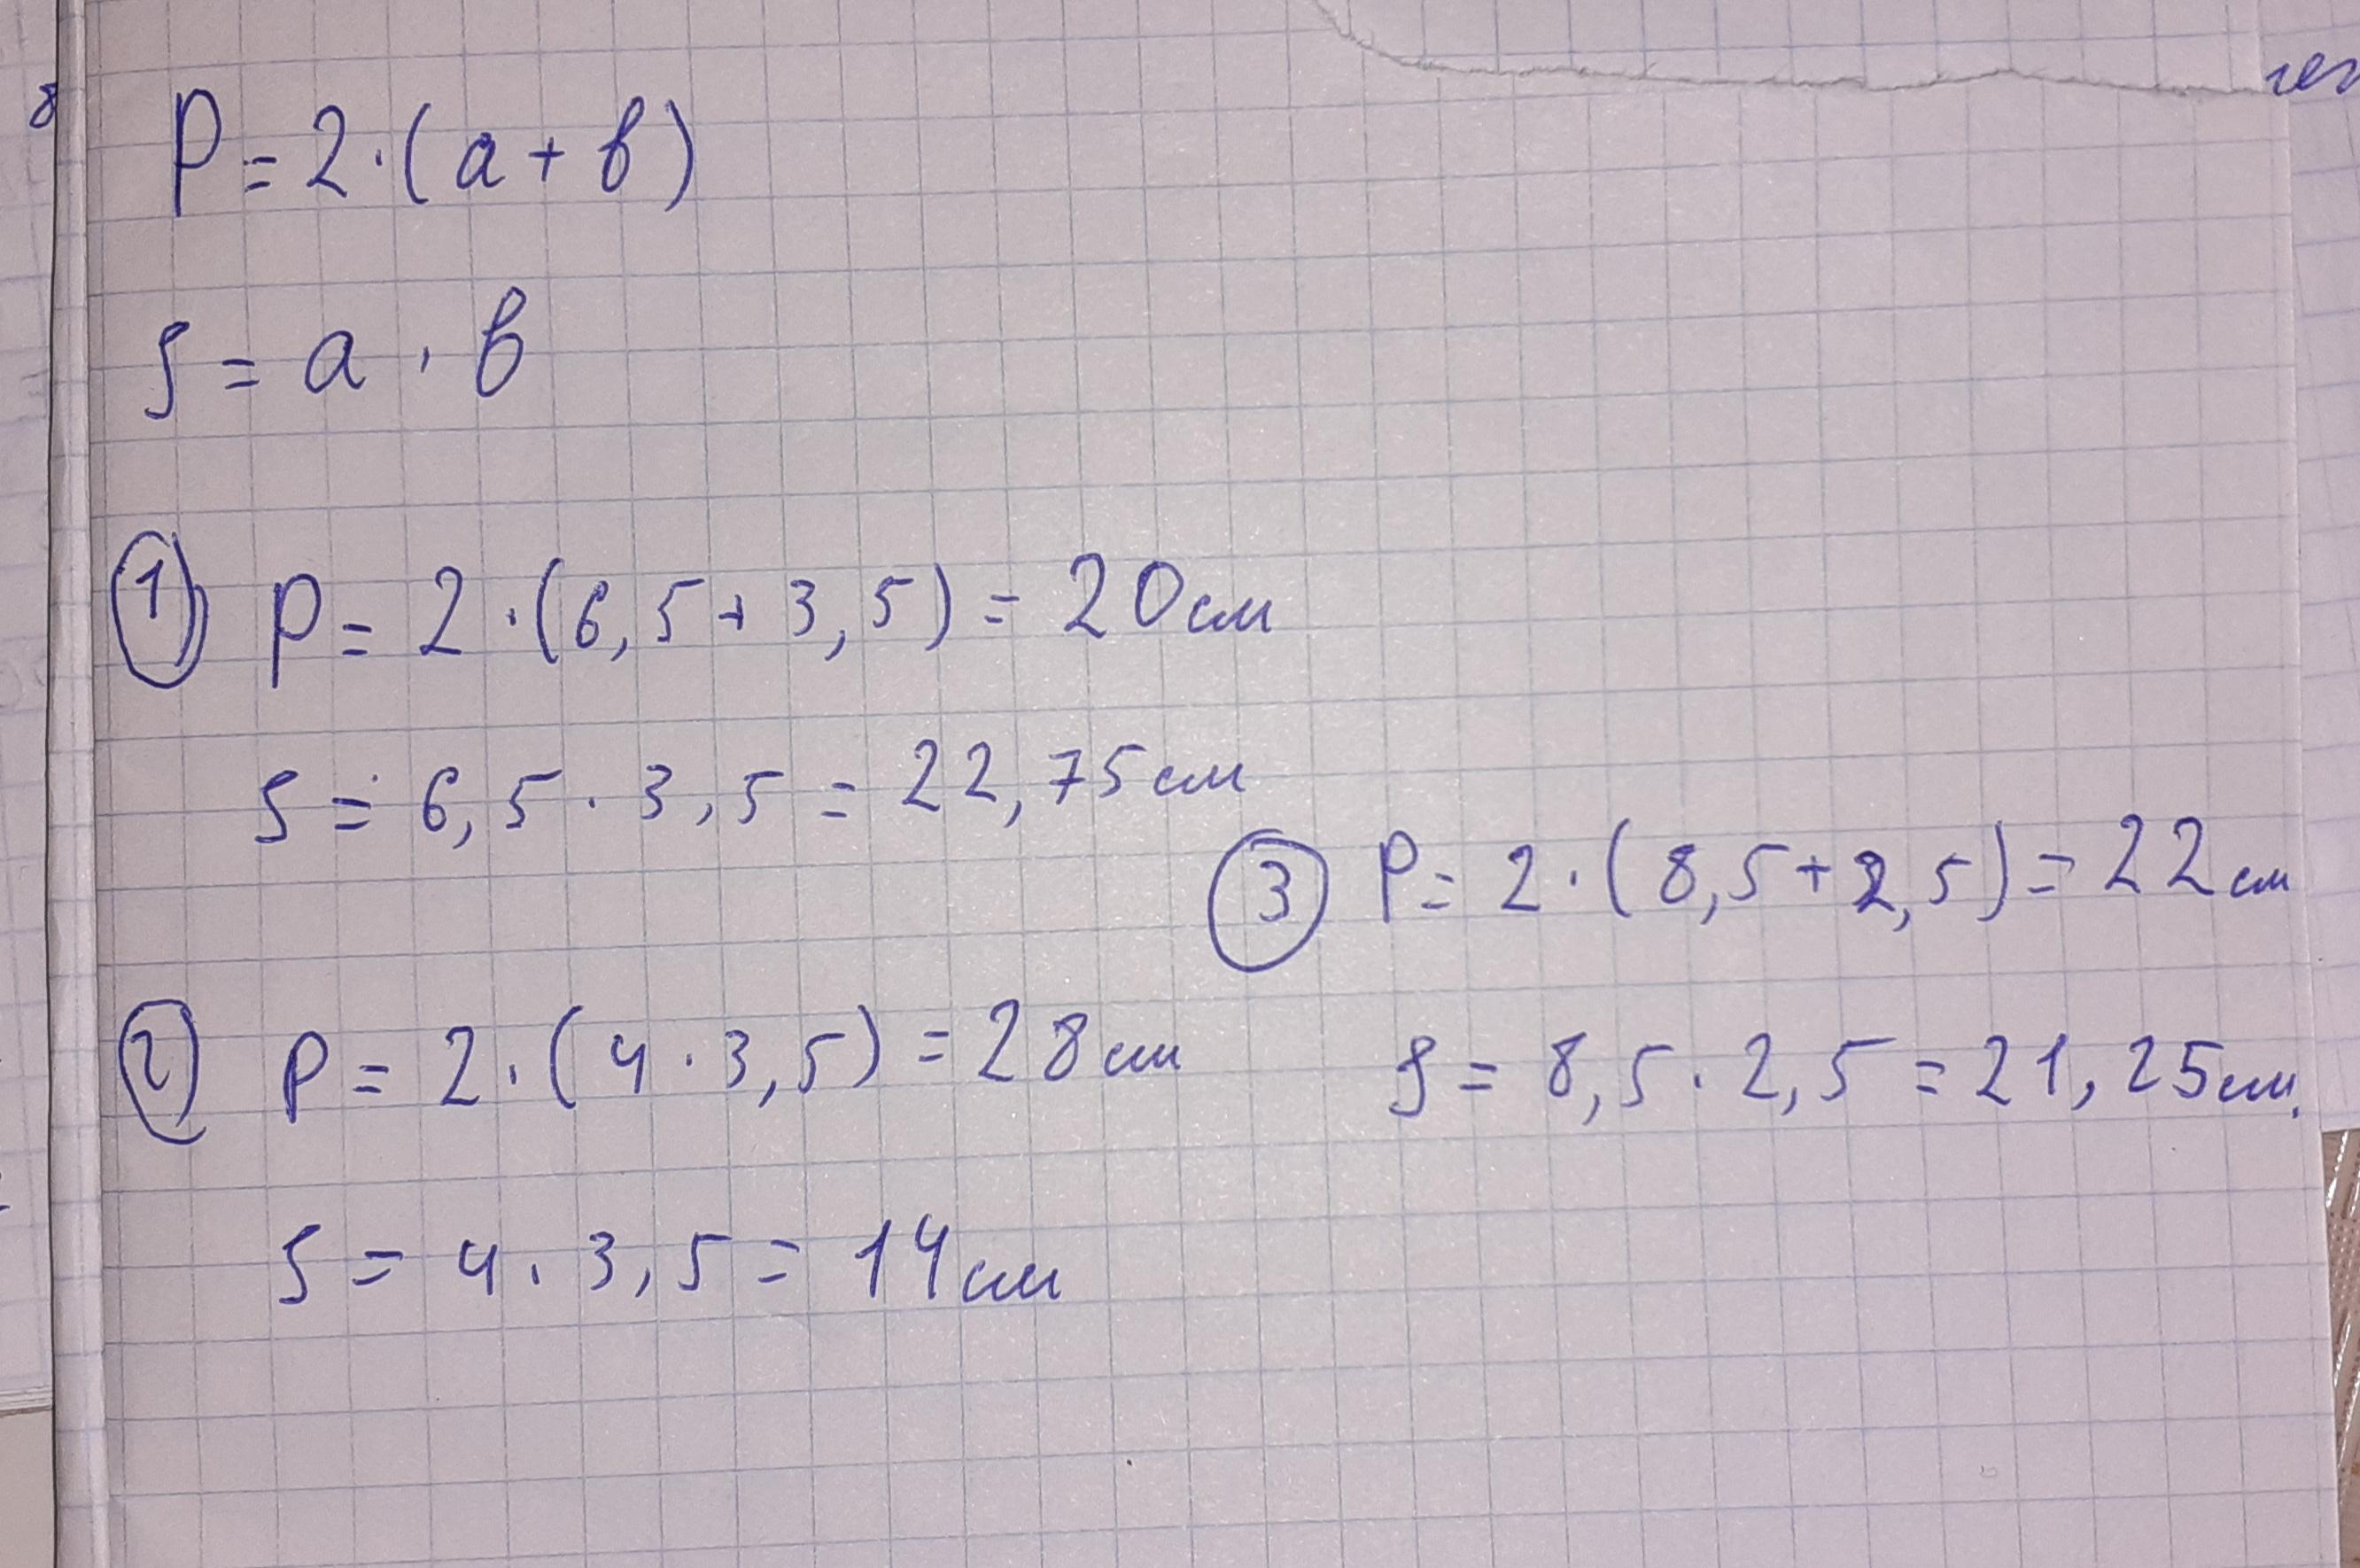 P = 2 · (a + b)
S = a · b
① P = 2 · (6,5 + 3,5) = 20 см
S = 6,5 · 3,5 = 22,75 см
② P = 2 · (4 · 3,5) = 28 см
S = 4 · 3,5 = 14 см
③ P = 2 · (8,5 + 2,5) = 22 см
S = 8,5 · 2,5 = 21,25 см.